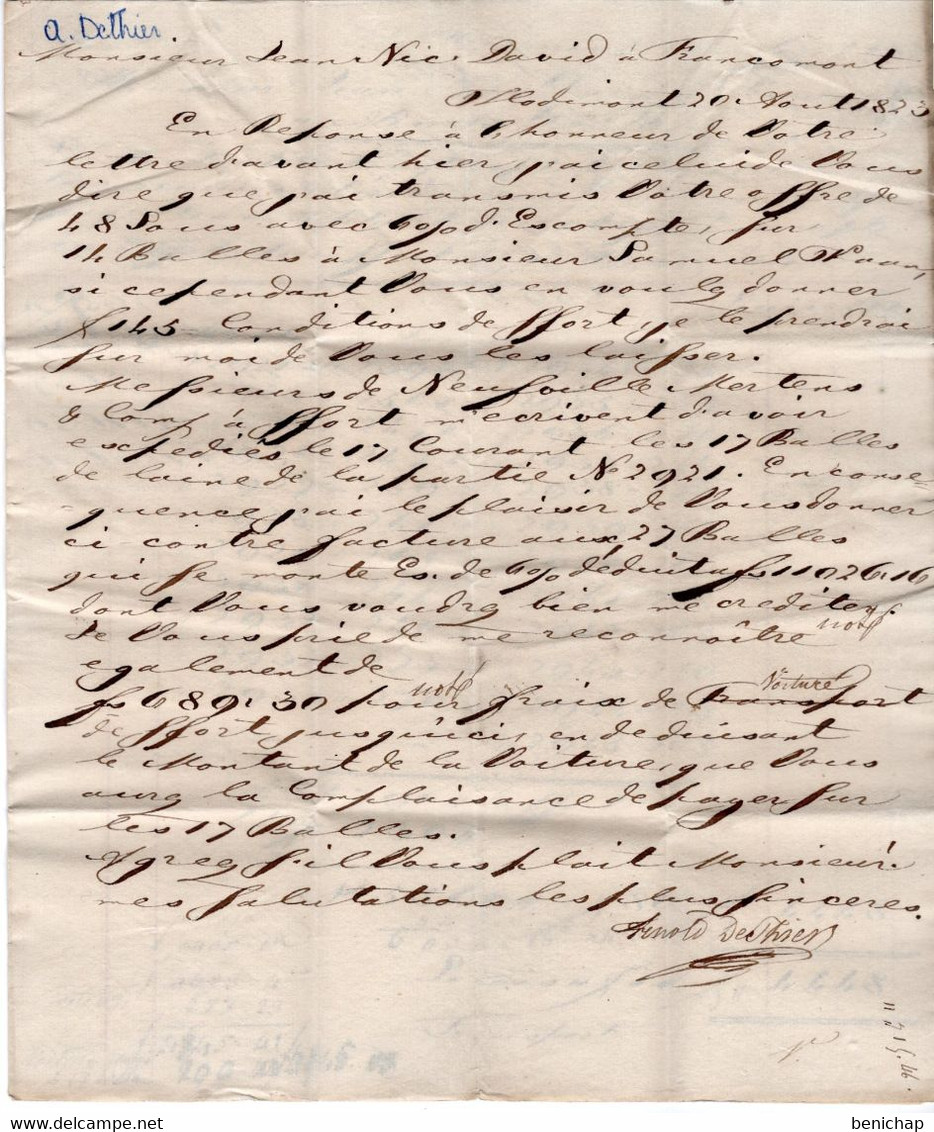 A. Dethier.
Monsieur Jean Nic. David à Francomont
Hodimont 20. Aout 1823
En Reponse à l'honneur de Votre
lettre d'avant hier, j'ai celui de Vous
dire que j'ai transmis Votre offre de
48 Sous avec 6 0/0 d'Escompte, sur
14 Balles à Monsieur Samuel
si cependant Vous en voulez donner
f 145 Conditions de ffort, je le prendrai
sur moi de Vous les laisser.
Messieurs de Neufville Mertens
& Comp à ffort m'ecrivent d'avoir
expediés le 17 Courant les 17 Balles
de laine de la partie N 2921. En conse-
-quence j'ai le plaisir de Vous donner
ci contre facture aux 27 Balles
qui se monte Es. de 6 0/0 déduit a fs 11026.16
dont Vous voudrez bien me crediter. noté
Je Vous prie de me reconnoître
egalement de
fs 689.30 noté pour fraix de Transport Voiture
de ffort jusqu'ici, en deduisant
le Montant de la Voiture, que Vous
aurez la Complaisance de payer sur
les 17 Balles.
Agreez s'il Vous plait Monsieur
mes salutations les plus sinceres.
Arnold Dethier
benichap
www.delcampe.net